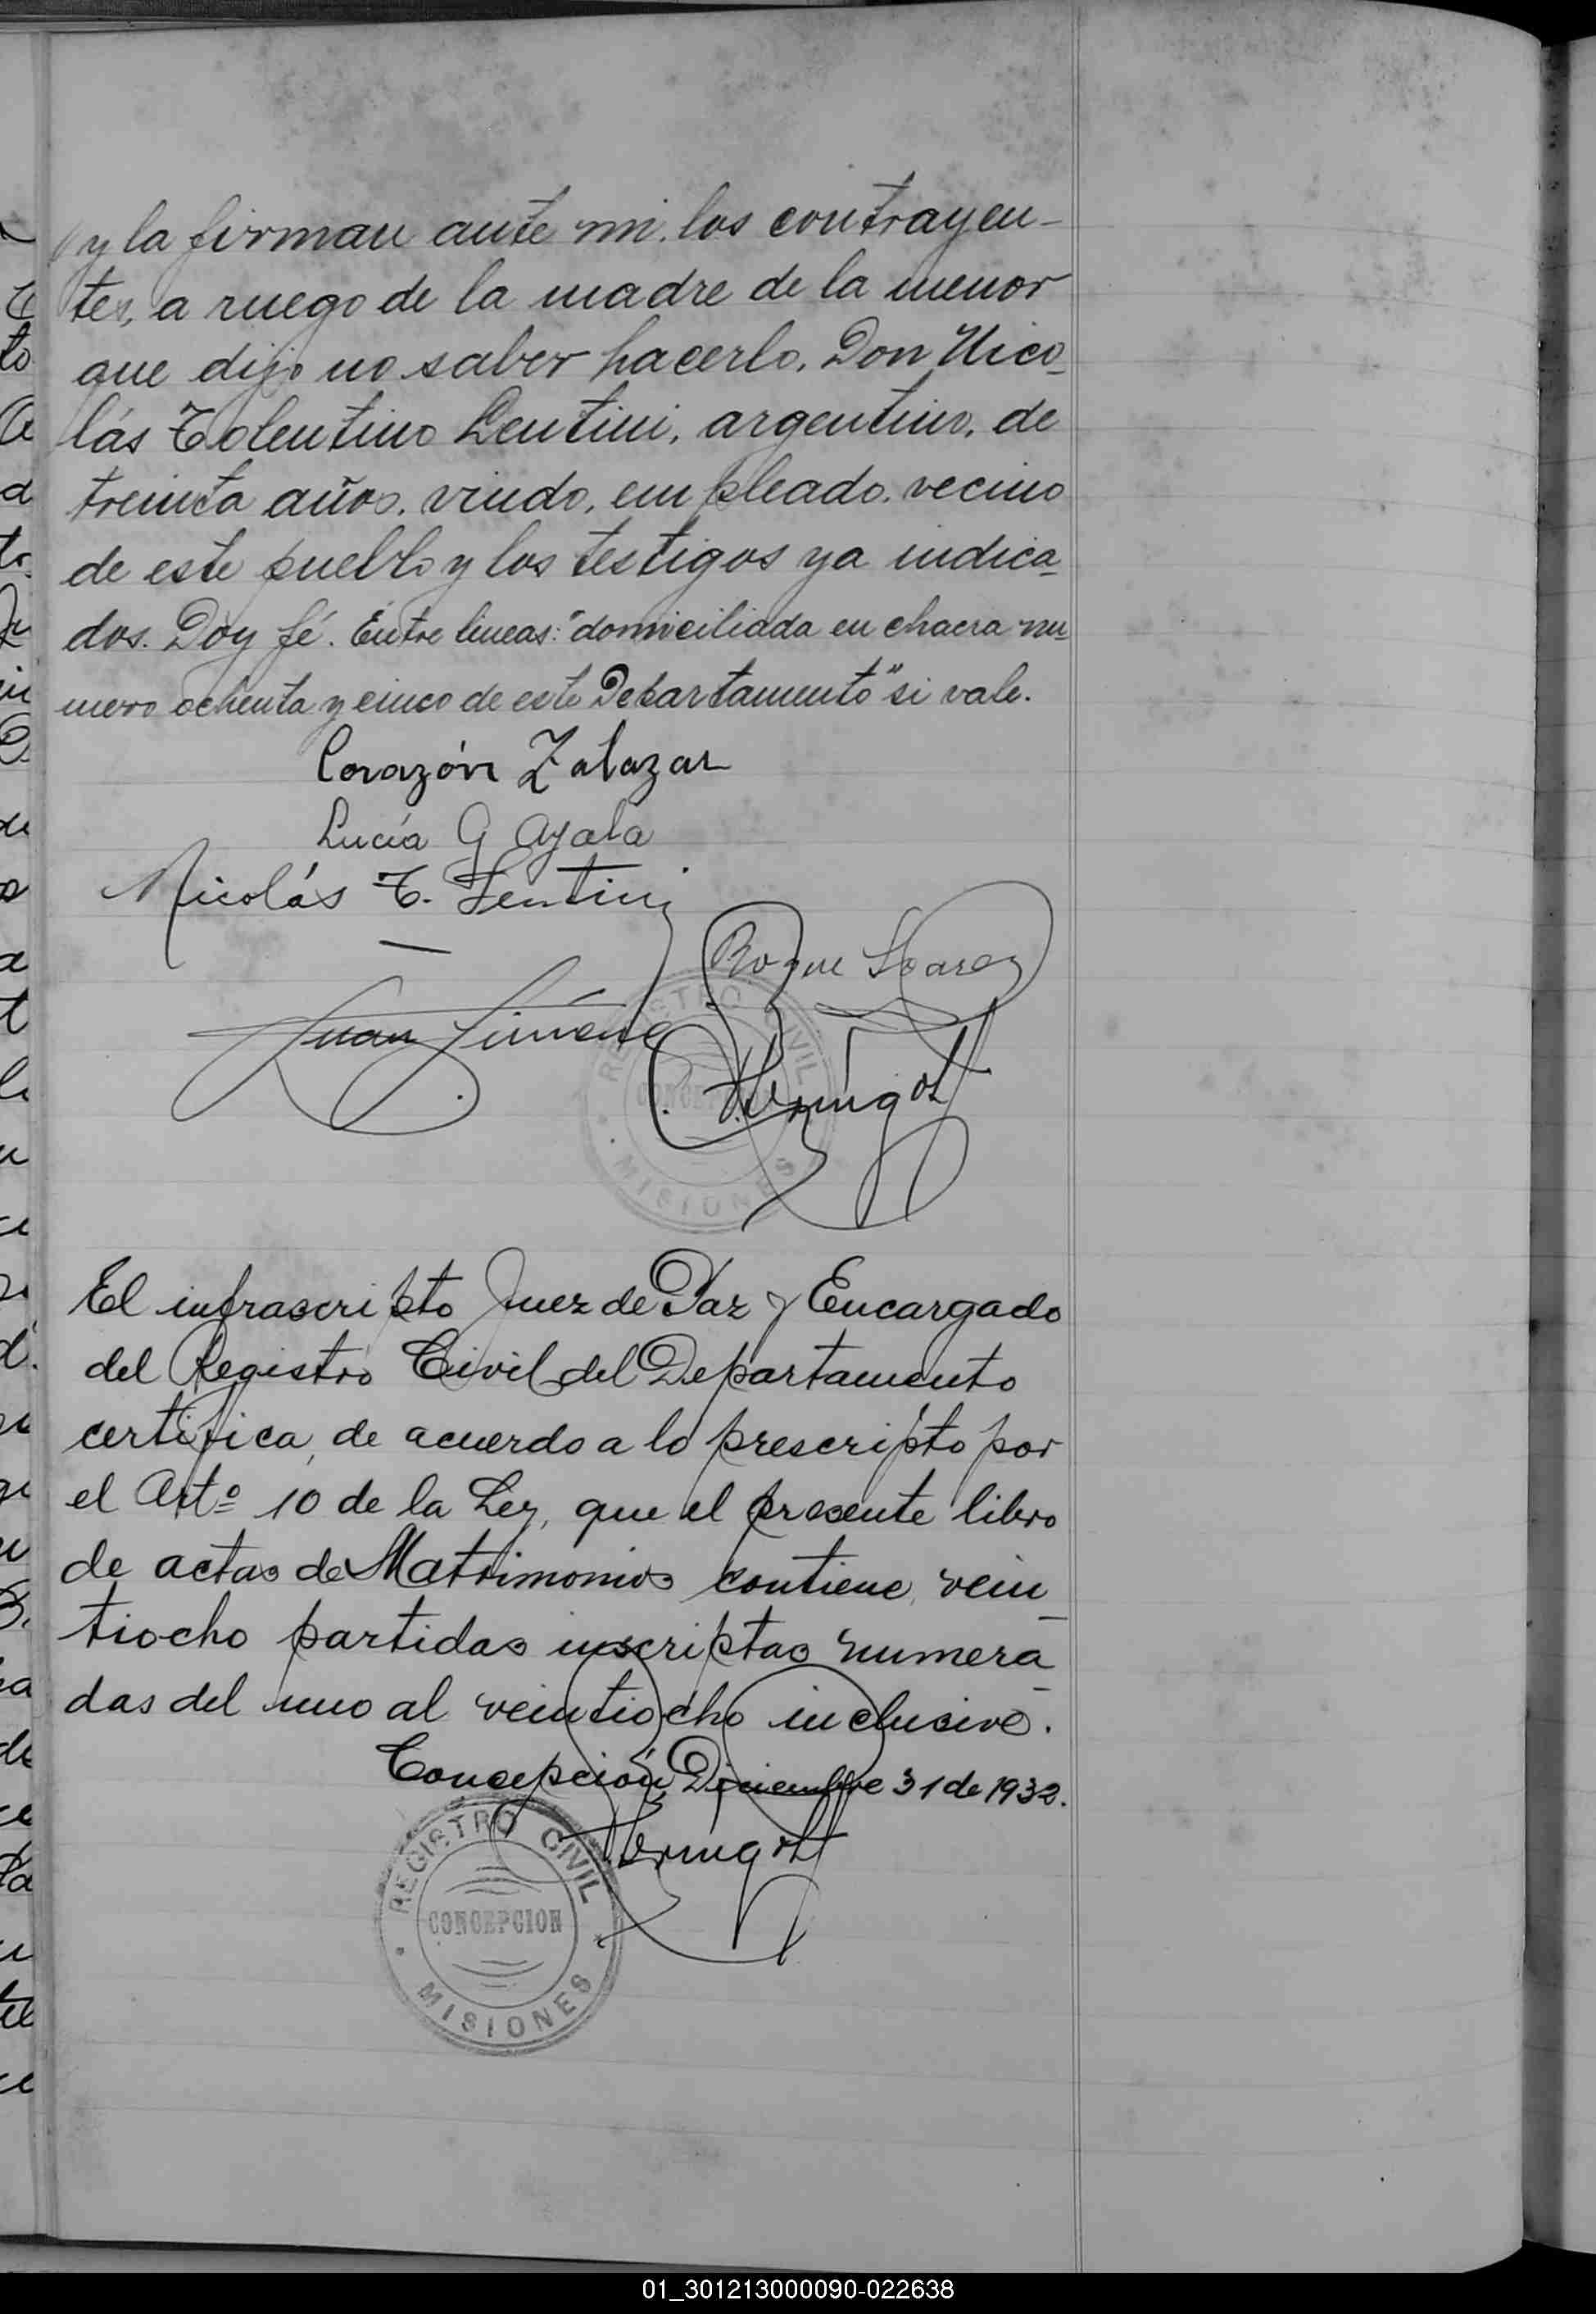 y la firman ante mi. los contrayen-
tes, a ruego de la madre de la menor
que dijo no saber hacerlo, Don Nico-
lás Tolentino Lentini, argentino, de
treinta años, viudo, empleado, vecino
de este pueblo y los testigos ya indica-
dos. Doy fé. Entre lineas: "domiciliada en chacra nu-
mero ochenta y cinco de este Departamento" si vale.
Corazón Zalazar
Lucía G Ayala
Nicolás T. Lentini
Roque Soarez
Juan Jiménez
REGISTRO CIVIL
CONCEPCION
MISIONES
El infrascripto Juez de Paz y Encargado
del Registro Civil del Departamento
certifica, de acuerdo a lo prescripto por
el Artº 10 de la Ley, que el presente libro
de actas de Matrimonios contiene vein-
tiocho partidas inscriptas numera-
das del uno al veintiocho inclusive.
Concepción Diciembre 31 de 1932.
REGISTRO CIVIL
CONCEPCION
MISIONES
01_301213000090-022638